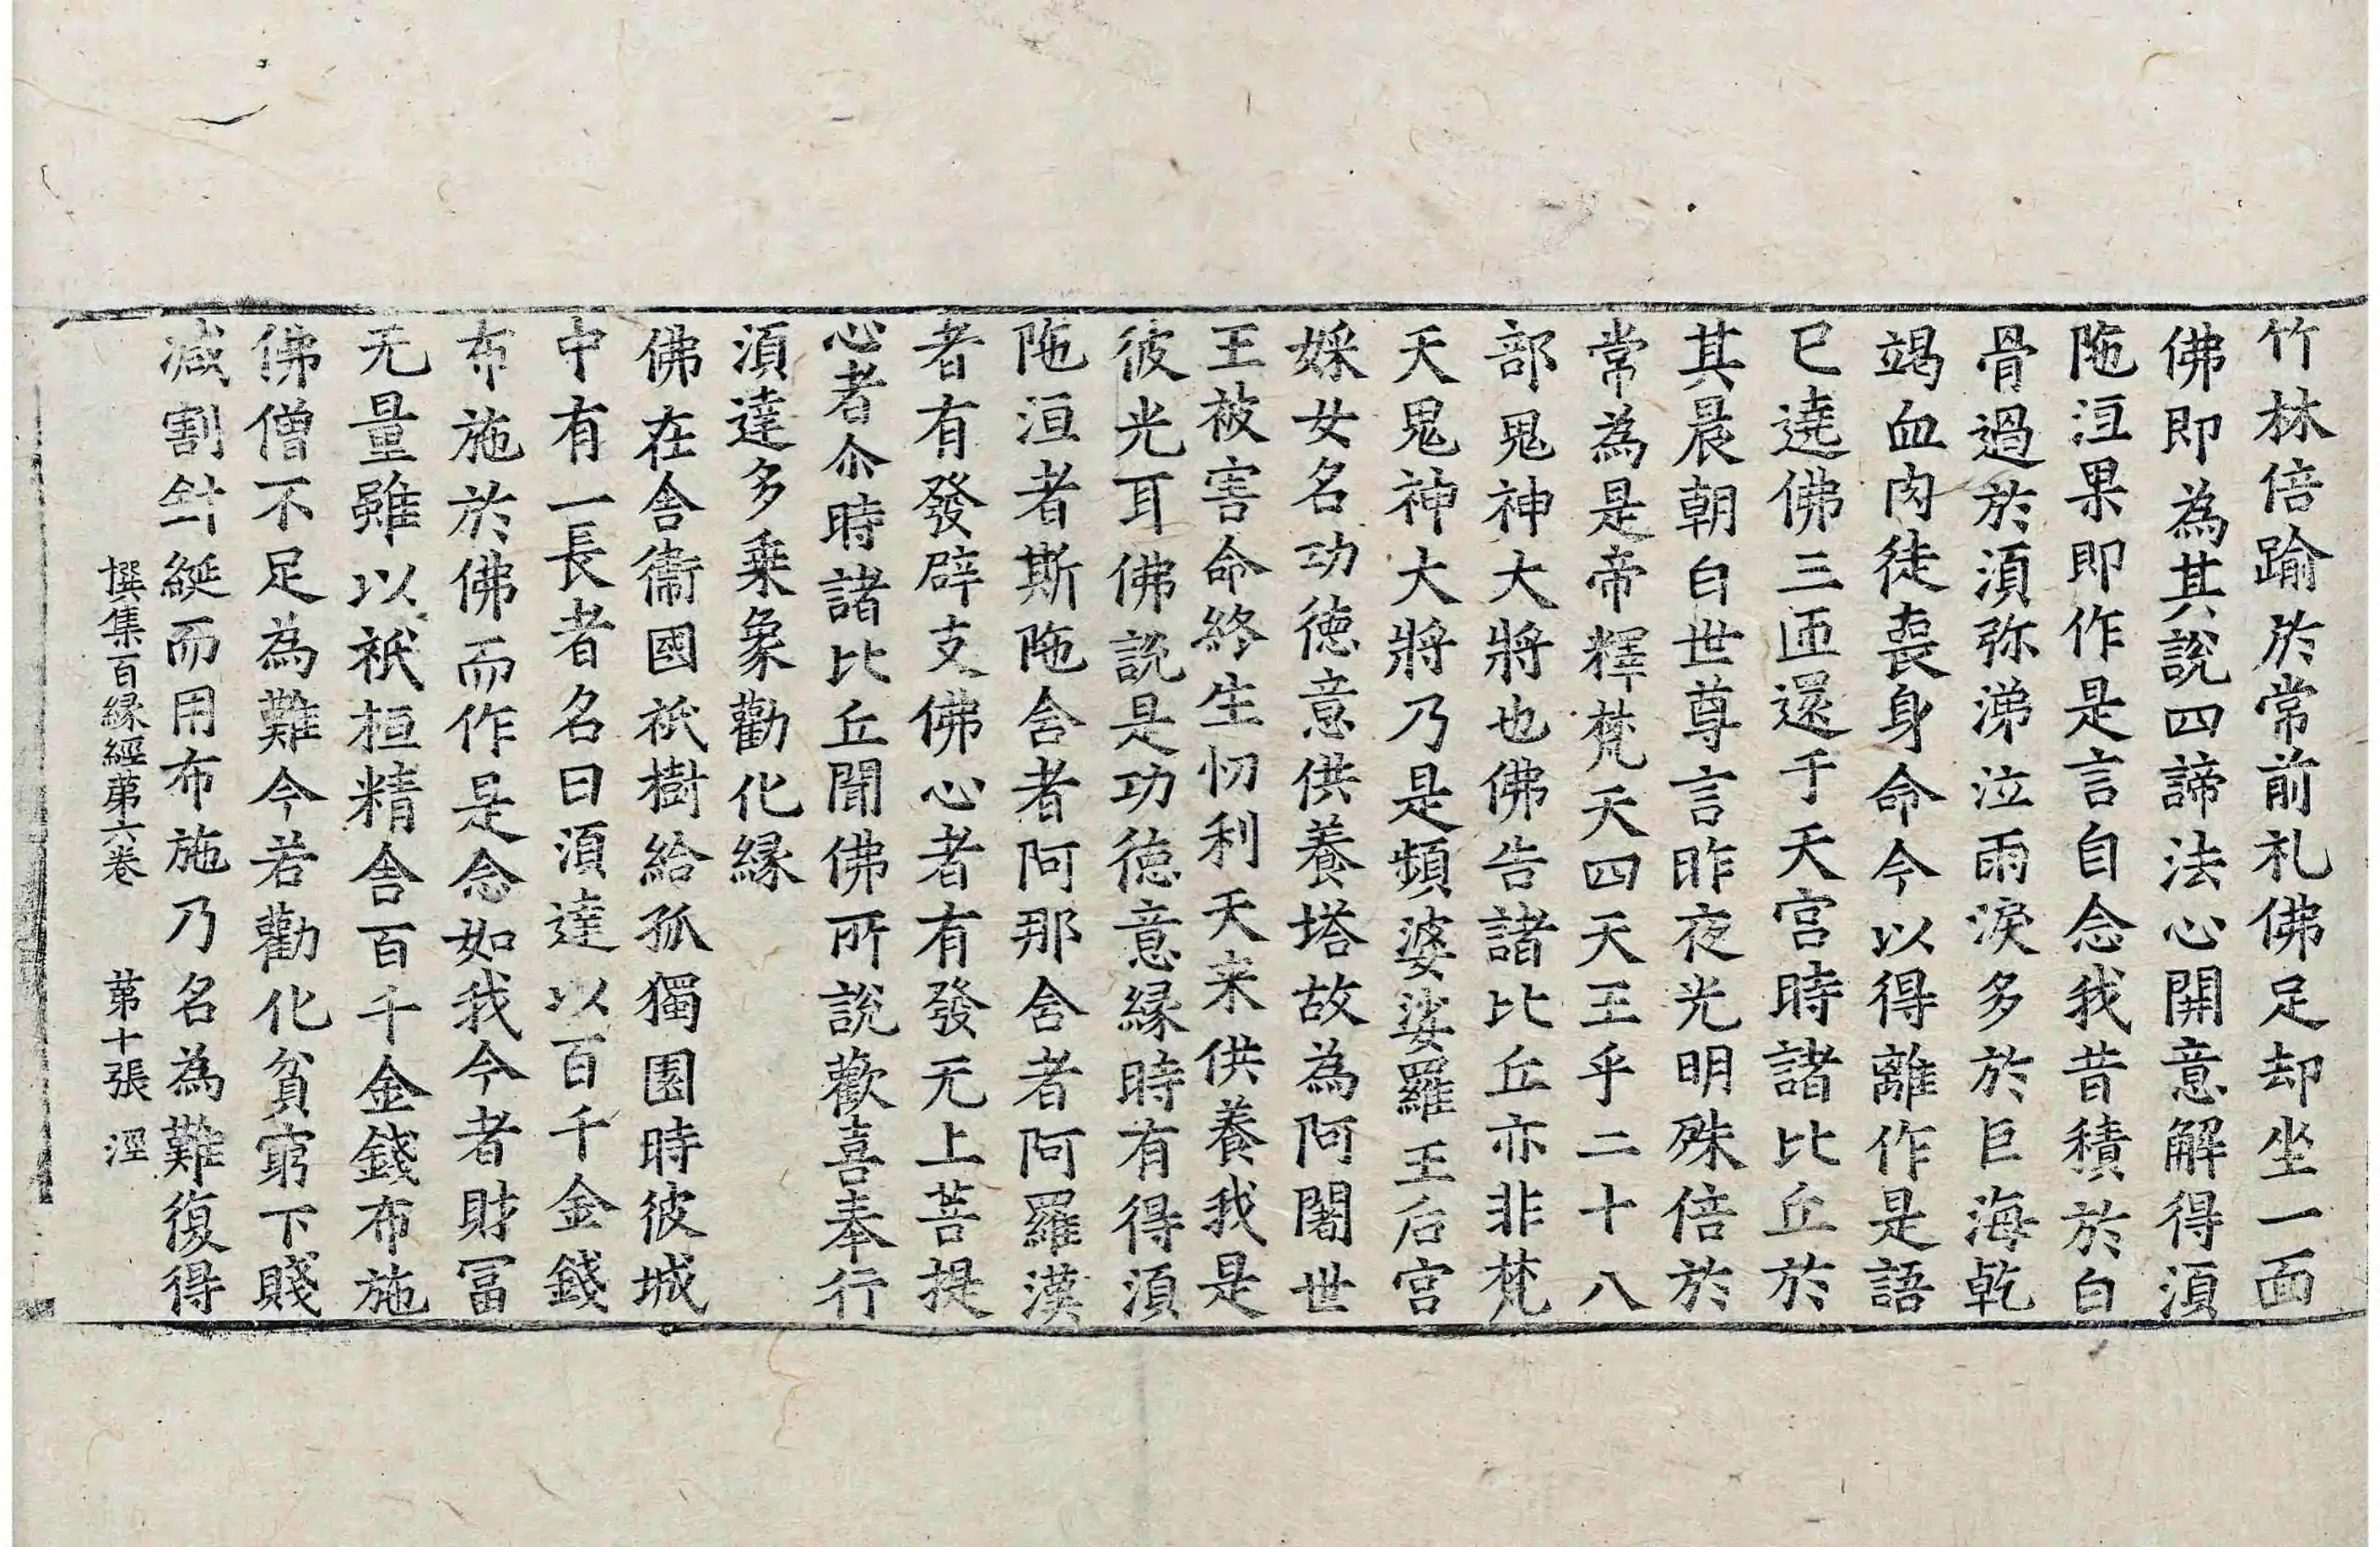 竹林倍踰於常前礼佛足却坐一面
佛即為其說四諦法心開意解得湏
陁洹果即作是言自念我昔積於白
骨過於湏弥涕泣雨淚多於巨海乾
竭血肉徒喪身命今以得離作是語
已遶佛三匝還于天宮時諸比丘於
其晨朝白世尊言昨夜光明殊倍於
常為是帝釋梵天四天王乎二十八
部鬼神大將也佛告諸比丘亦非梵
天鬼神大將乃是頻婆娑羅王后宮
婇女名功德意供養塔故為阿闍世
王被害命終生忉利天来供養我是
彼光耳佛說是功德意縁時有得湏
陁洹者斯陁含者阿那含者阿羅漢
者有發辟支佛心者有發无上菩提
心者尒時諸比丘聞佛所說歡喜奉行
湏達多乗象勸化縁
佛在舍衞國祇樹給孤獨園時彼城
中有一長者名曰湏達以百千金錢
布施於佛而作是念如我今者財冨
无量雖以祇桓精舍百千金錢布施
佛僧不足為難今若勸化貧窮下賤
減割針綖而用布施乃名為難復得
撰集百縁經苐六卷　苐十張　涇